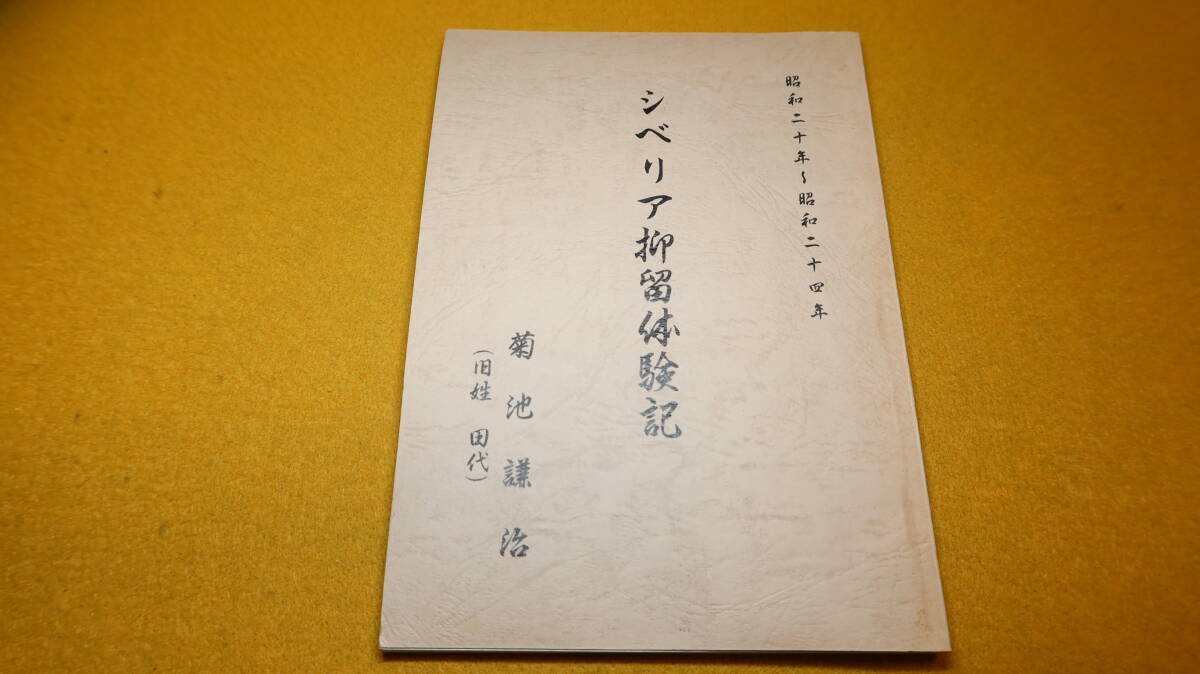 昭和二十年~昭和二十四年
シベリア抑留体験記
菊池謙治
(旧姓 田代)